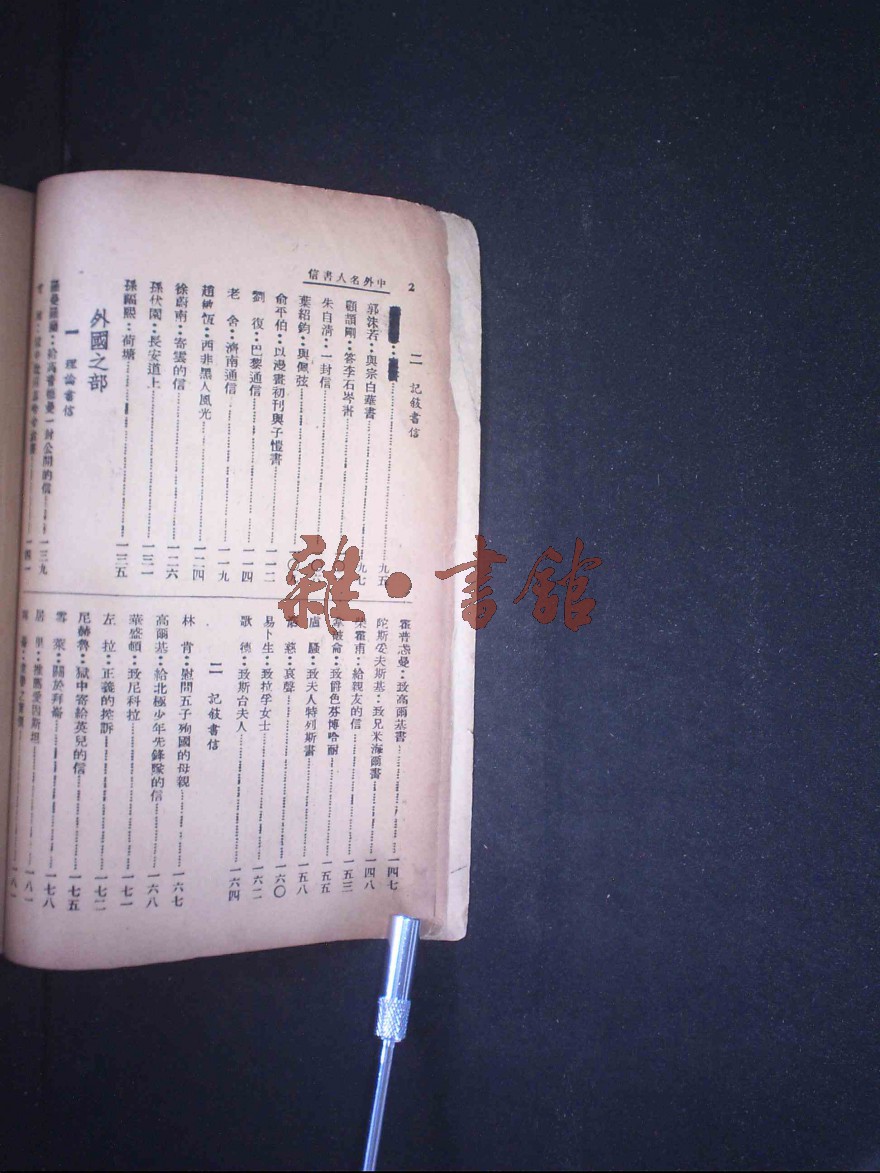 2
中外名人書信
二 記敍書信
郭沫若：與宗白華書 九五
顧頡剛：答李石岑書 九七
朱自清：一封信
葉紹鈞：與佩弦
俞平伯：以漫畫初刊與子愷書 一一二
劉復：巴黎通信 一一四
老舍：濟南通信 一一九
趙敏恆：西非黑人風光 一二四
徐蔚南：寄雲的信 一二六
孫伏園：長安道上 一三一
孫福熙：荷塘 一三五
外國之部
一 理論書信
羅曼羅蘭：給高普德曼一封公開的信 一三九
一四一
霍普德曼：致高爾基書 一四七
陀斯妥夫斯基：致兄米海爾書 一四八
柴霍甫：給親友的信 一五三
致爵色芬博哈耐 一五五
盧騷：致夫人特列斯書 一五八
哀聲 一六〇
易卜生：致拉孚女士 一六二
歌德：致斯台夫人 一六四
二 記敍書信
林肯：慰問五子殉國的母親 一六七
高爾基：給北極少年先鋒隊的信 一六八
華盛頓：致尼科拉 一七一
左拉：正義的控訴 一七二
尼赫魯：獄中寄給英兒的信 一七五
雪萊：關於拜崙 一七八
居里：推薦愛因斯坦 一八一
雜·書館